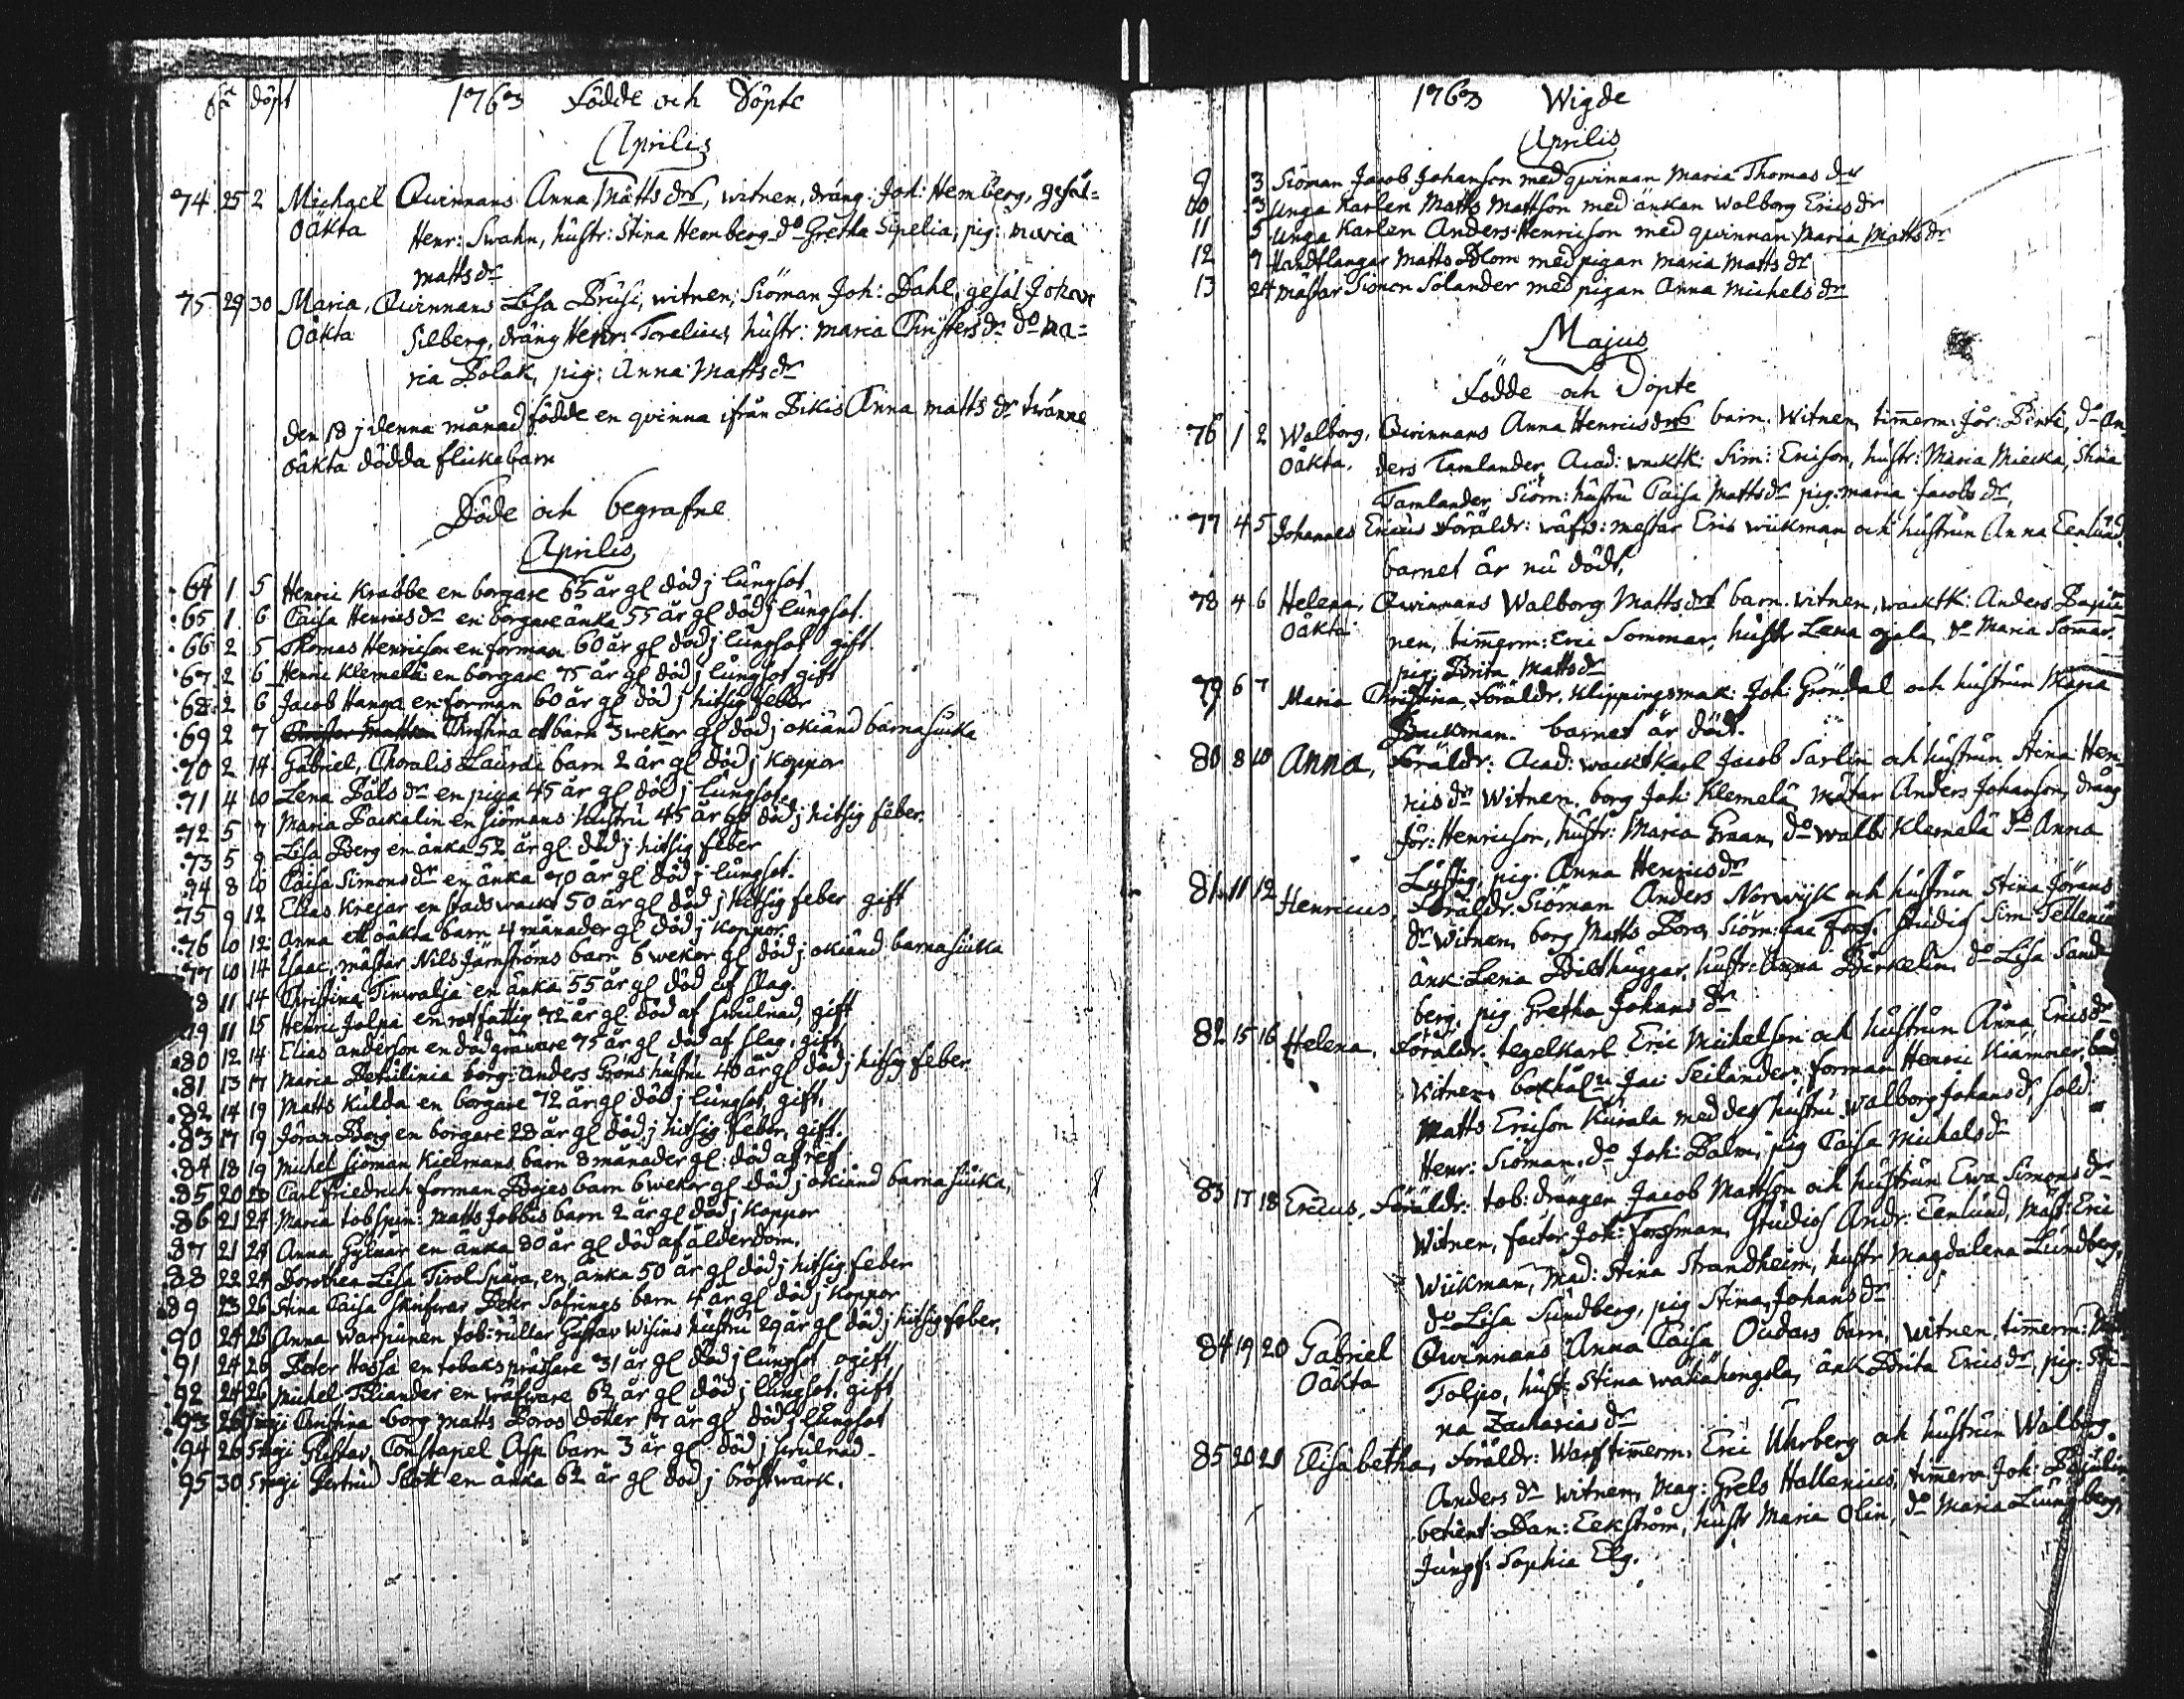 1763 Födde och Döpte
döpt
Aprilis
74 25 2 Michael Qvinnans Anna Matts drs, witnen, dräng: Joh: Hemberg, gesäl=
Oäkta Henr: Swahn, hustr: Stina Hemberg do Gretha Sipelia, pig: maria
matts dr
75 29 30 Maria, Qvinnans Lisa Brusi, witnen, Siöman Joh: Dahl, gesäl Johan
Oäkta Silberg, dräng Henr: Torelius, hustr: maria Christers dr do ma=
ria Polak, pig: Anna Matts dr
den 18 j denna månad födde en qvinna ifrån Bikis Anna matts dr twänne
oäkta dödda flickebarn
Döde och begrafne
Aprilis
64 1 5 Henric Krabbe en borgare 65 år gl död j lungsot
65 1 6 Caisa Henrics dr en borgare änka 55 år gl död j lungsot.
66 2 5 Thomas Henricson en forman 60 år gl död j lungsot gift
67 2 6 Henric Klemelä en borgare 75 år gl död j lungsot gift
68 2 6 Jacob Hanga en forman 60 år gl död j hitsig feber
69 2 7 Christina ett barn 3 wekor gl död j okiänd barnasiuka
70 2 14 Gabriel, Choralis Laurdi barn 2 år gl död j koppor
71 4 10 Lena Påls dr en piga 45 år gl död j lungsot
72 5 7 Maria Backalin en siömans hustru 45 år gl död j hitsig feber.
73 5 9 Lisa Berg en änka 52 år gl död j hitsig feber
94 8 10 Caisa Simons dr en änka 70 år gl död j lungsot.
75 9 12 Elias Krejar en stadswackt 50 år gl död j hitsig feber gift
76 10 12 Anna ett oäkta barn 4 månader gl död j koppor
77 10 14 Isaac, mästar Nils Järnströms barn 6 wekor gl död j okiänd barnasiuka
78 11 14 Christina Tinwalja en änka 55 år gl död af slag.
79 11 15 Henric Jolpa en rotfattig 72 år gl död af swulnad, gift
80 12 14 Elias anderson en dödgräware 75 år gl död af slag, gift
81 13 17 Maria Betulinia borg: anders Gröns hustru 40 år gl död j hitsig feber
82 14 19 Matts Kulda en borgare 72 år gl död j lungsot, gift,
83 17 19 Jöran Berg en borgare 28 år gl död j hitsig feber, gift.
84 18 19 Michel siöman Kielmans barn 8 månader gl: död af ref
85 20 20 Carl friedrich forman Bojes barn 6 wekor gl död j okiänd barnasiuka,
86 21 24 Maria tobspin: matts Jobbis barn 2 år gl död j koppor
87 21 24 Anna Gylnär en änka 80 år gl död af ålderdom.
88 22 24 Dorothea Lisa Tirol Spåra, en änka 50 år gl död j hitsig feber
89 23 26 Stina Caisa Peter Safrings barn 4 år gl död j koppor
90 24 26 Anna Warpunen tob: rullar Gustav Wisins hustru 29 år gl död j hitsig feber,
91 24 26 Peter Hassa en tobakspräsare 31 år gl död j lungsot ogift
92 24 26 Michel Thiander en wäfware 62 år gl död j lungsot, gift
93 26 5 maji Christina borg matts Boros dotter 17 år gl död j lungsot
94 26 5 maji Gustav, Constapel Asp barn 3 år gl död j swulnad.
95 30 5 maji Gertrud Skott en änka 62 år gl död j bröstwärk.
1763 Wigde
Aprilis
9 3 Siöman Jacob Johanson med qwinnan Maria Thomas dr
10 3 Unga Karlen Matts Mattson med änkan Walborg Erics dr
11 5 Unga Karlen Anders Henricson med qwinnan Maria Matts dr
12 9 Handtlangar Matts Blom med pigan Maria Matts dr
13 24 mästar Simon Solander med pigan Anna Michels dr
Majus
Födde och Döpte
76 1 2 Walborg, Qwinnans Anna Henrics drs barn. Witnen, timerm: Jör: Penti, do An
Oäkta. ders Tamlander Acad: wacktk: Sim: Ericson, hustr: Maria Miecka, Stina
Tamlander, Siöm: hustru Caisa Matts dr pig: maria Jacobs dr,
77 4 5 Johannes Ericus Föräldr: wäfw: mestar Eric wickman och hustrun Anna Eenlund.
barnet är nu dödt,
78 4 6 Helena, Qwinnans Walborg Matts drs barn. Witnen, wacktk: Anders
Oäkta nen, timerm: Eric Sommar, hustr Lena ojala, do Maria Sommar,
pig: Brita Matts dr
79 6 7 Maria Christina, Föräldr. Klippingsmak: Joh: Gröndal och hustrun Maria
Backman. barnet är dödt.
80 8 10 Anna, Föräldr: Acad: wacktkarl Jacob Sarlin och hustrun Stina Hen-
rics dr Witnen. borg Joh: Klemelä, mätar Anders Johanson, dräng
Jör: Henricson, hustr: Maria Graan, do Walb: Klemelä do Anna
Lustig, pig: Anna Henrics dr
81 11 12 Henricus, Föräldr: Siöman Anders Norwijk och hustrun Stina Jörans
dr Witnen, borg Matts Boro, Siöm: Studios Sim Tellenius
änk: Lena Bilthuggar, hustr: Anna Birkelin, do Lisa Sand
berg, pig Gretha Johans dr
82 15 16 Helena, Föräldr. tegelkarl Eric Michelson och hustrun Anna Erics dr
Witnen, bokhål Jac: Seilander, forman Henric Kiämner,
Matts Ericson Kurala med des hustru walborg Johans dr, sold:
Henr: Siöman, do Joh: Palm, pig Caisa Michals dr
83 17 18 Ericus, Föräldr: tob: drängen Jacob Mattson och hustrun Ewa Simons dr
Witnen, factor Joh: Forssman, Studios Andr: Eenlund, mäst: Eric
Wickman, Mad: Stina Strandheim, hustr Magdalena Lundberg,
do Lisa Sundberg, pig Stina Johans dr
84 19 20 Gabriel Qwinnans Anna Caisa Oudars barn, witnen, timerm:
Oäkta Toljo, hust: Stina änk Brita Erics dr, pig: Sti-
na Zacharias dr
85 20 21 Elisabetha, Föräldr: Warfstimerm. Eric Uhrberg och hustrun Walborg
Anders dr witnen, Mag: Grels Hallenius, timerm Joh:
betient Dan: Eekström, hustr Maria Olin, do Maria Liungberg,
Jungf: Sophia Elg.